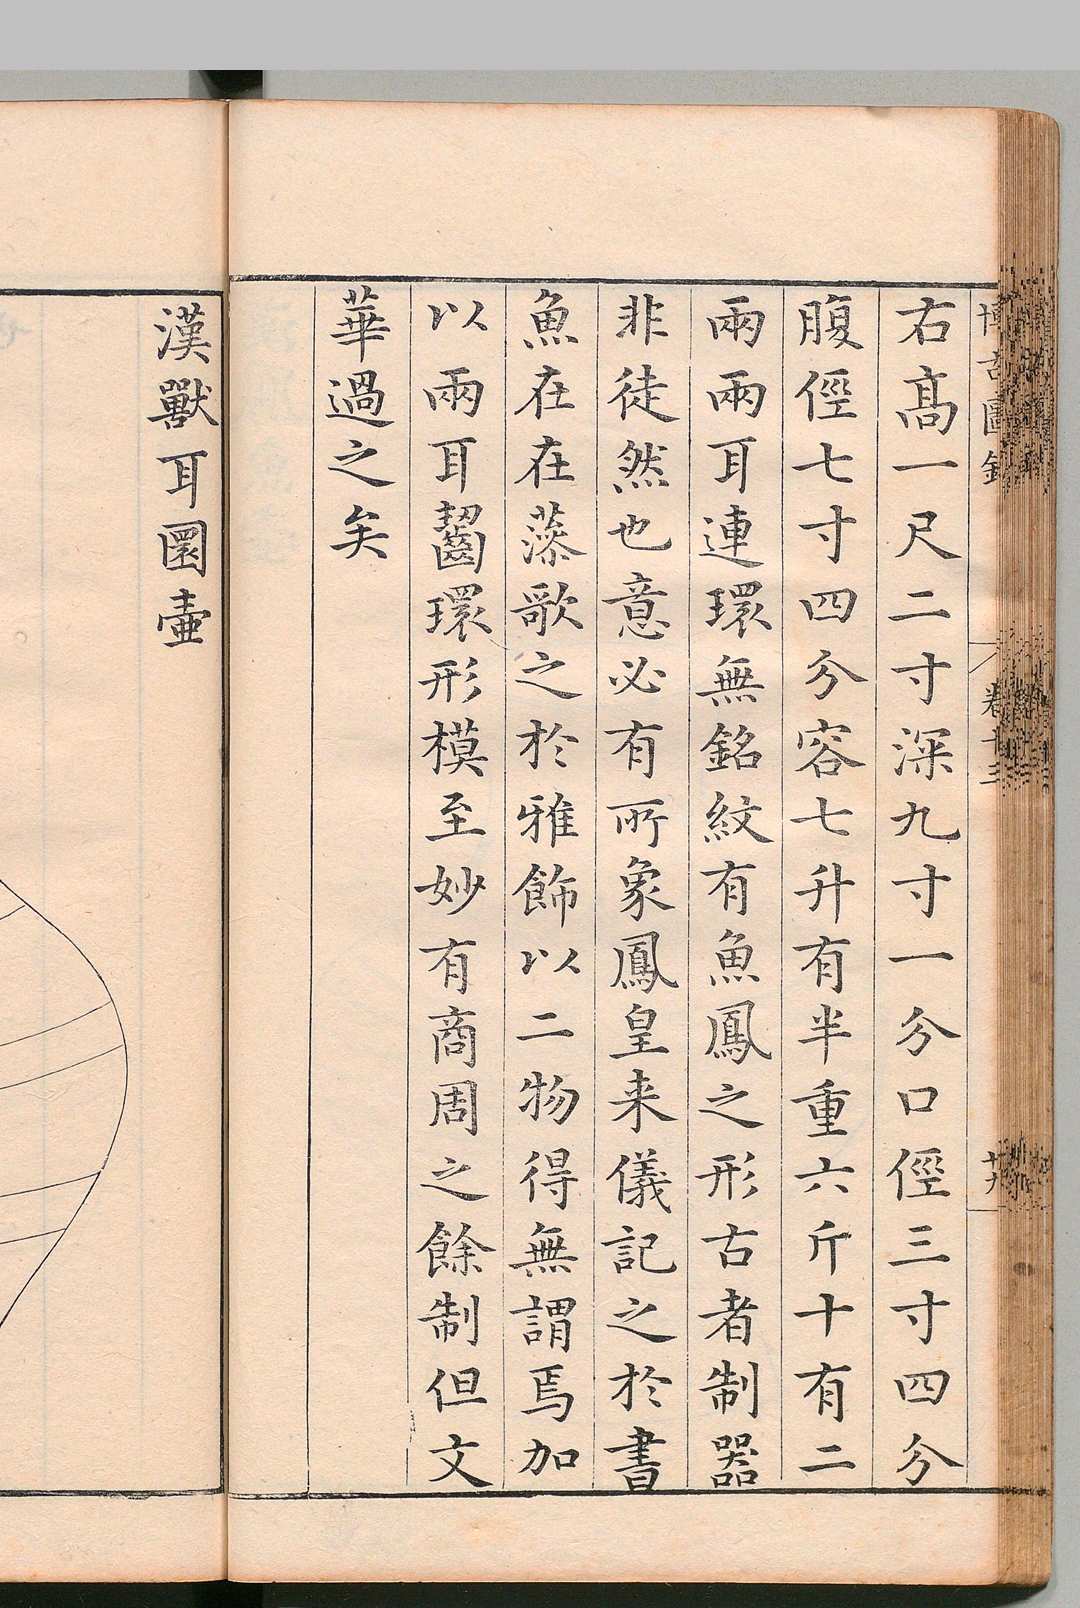 博古圖錄
卷十三
右髙一尺二寸深九寸一分口俓三寸四分
腹俓七寸四分容七升有半重六斤十有二
兩兩耳連環無銘紋有魚鳳之形古者制器
非徒然也意必有所象鳳皇来儀記之於書
魚在在藻歌之於雅飾以二物得無謂焉加
以兩耳齧環形模至妙有商周之餘制但文
華過之矣
漢獸耳圜壷